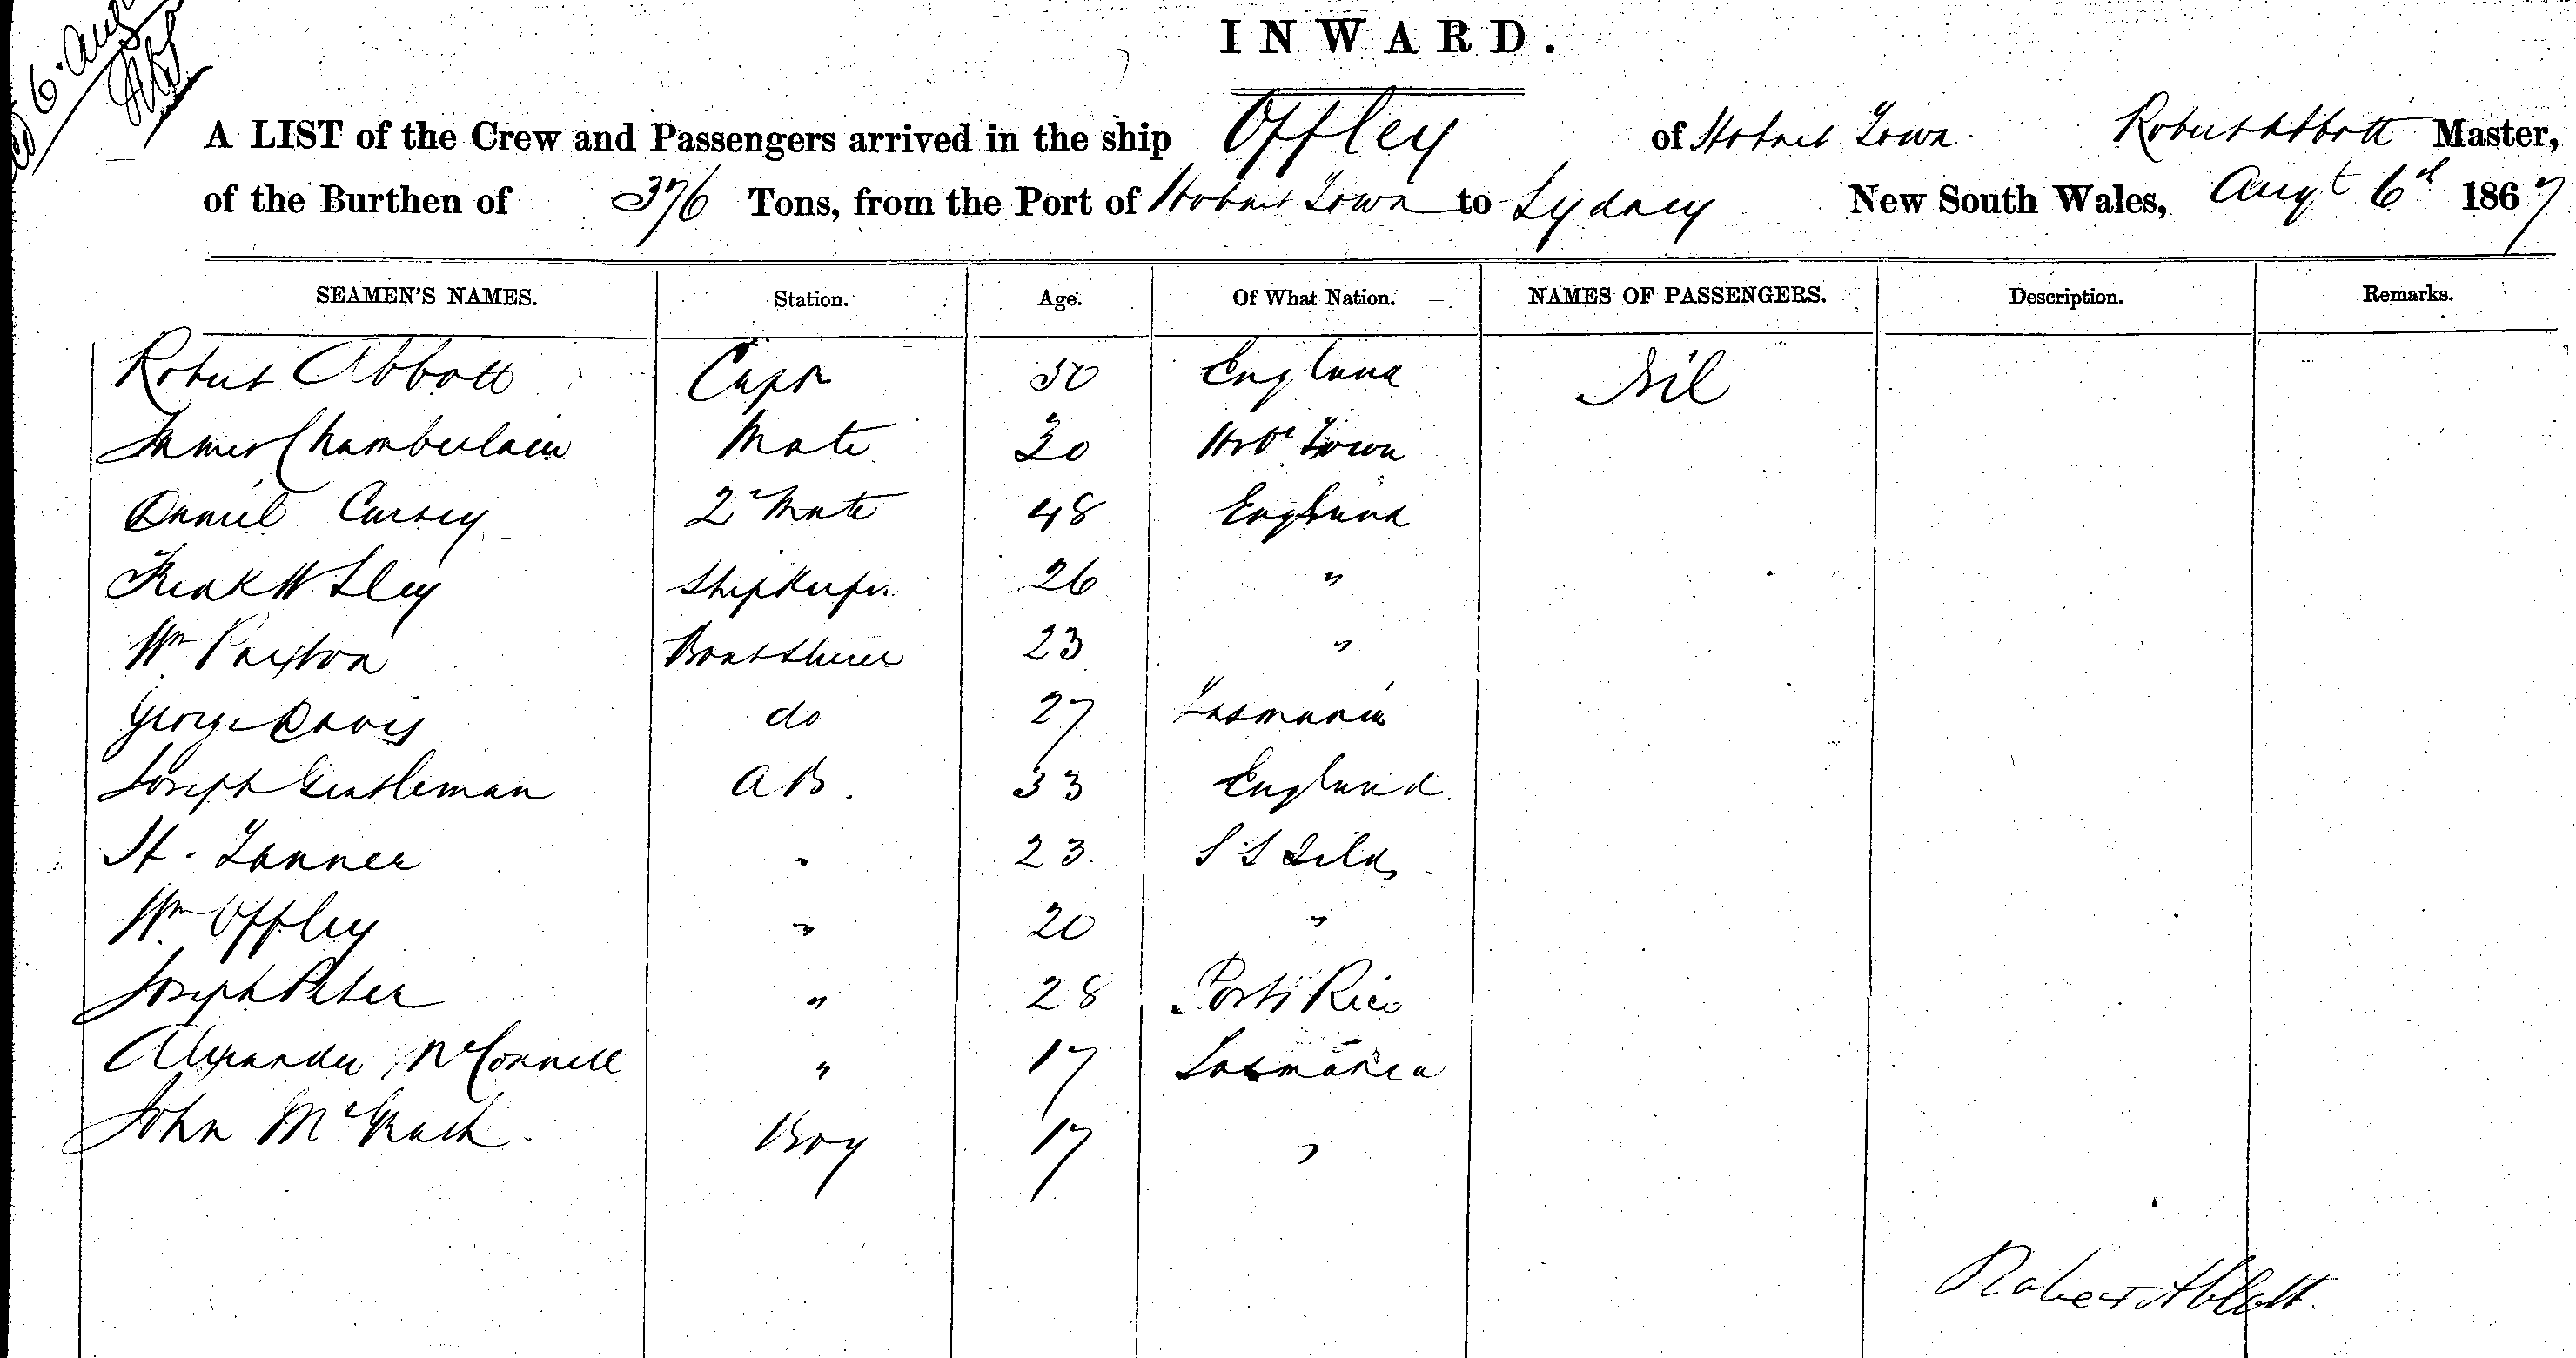 6. Aug
INWARD.
A LIST of the Crew and Passengers arrived in the ship Offley of Hobart Town Robert Abbott Master,
of the Burthen of 376 Tons, from the Port of Hobart Town to Sydney New South Wales, Augt 6th 1867
SEAMEN'S NAMES. Station. Age. Of What Nation. NAMES OF PASSENGERS. Description. Remarks.
Robert Abbott Captn 50 England Nil
James Chamberlain Mate 30 Hobt Town
Daniel Cursey 2d Mate 48 England
Fredk W Sley Shipkeeper 26 "
Wm Paxton Boatsteerer 23 "
George Davis do 27 Tasmania
Joseph Gentleman AB. 33 England.
H. Tanner " 23 S S Ilds
Wm Offley " 20 "
Joseph Peter " 28 Porto Rico
Alexander McConnell " 17 Tasmania
John McGrath Boy 17 "
Robert Abbott.